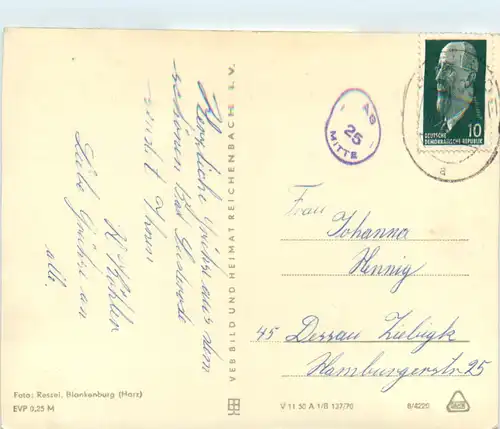 Herzliche Grüße aus dem
schönen Bad Suderode
sendet Ihnen
K. Köhler
Liebe Grüße an
alle.
VEB BILD UND HEIMAT REICHENBACH i. V.
AG
25
MITTE
10
DEUTSCHE
DEMOKRATISCHE REPUBLIK
a
Frau
Johanna
Hennig
45 Dessau Ziebigk
Hamburgerstr 25
Foto: Ressel, Blankenburg (Harz)
EVP 0,25 M
V 11 50 A 1/B 137/70
8/4220